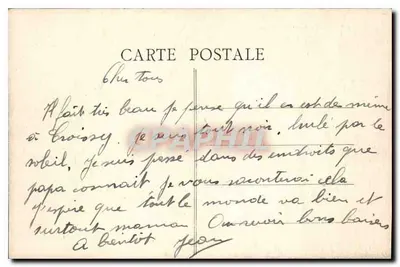 CARTE POSTALE
Cher tous
Il fait très beau je pense qu'il en est de même
à Croissy. je suis tout noir. brulé par le
soleil, je suis passé dans des endroits que
papa connait je vous raconterai cela
j'espère que tout le monde va bien et
surtout maman Au revoir bons baisers
A bientôt Jean